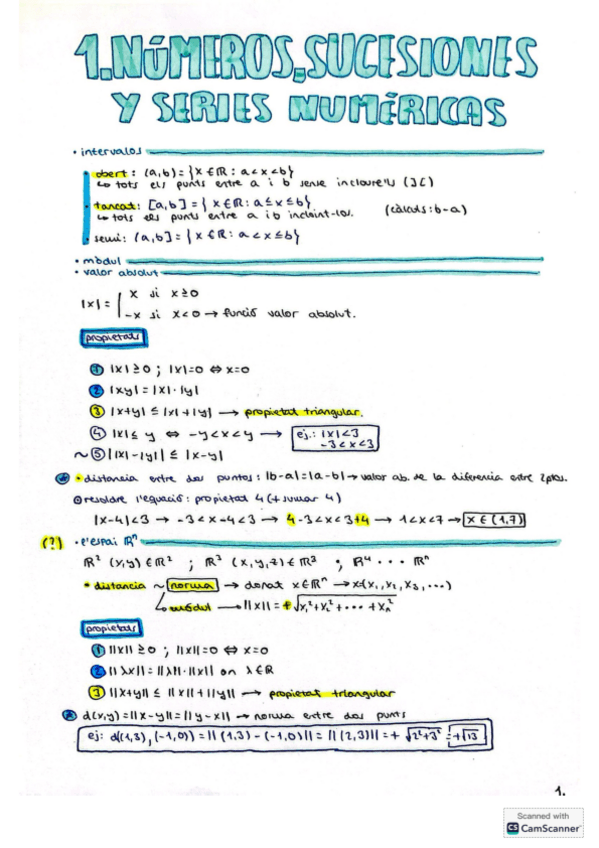 1. NÚMEROS, SUCESIONES
Y SERIES NUMÉRICAS
• intervalos
• obert: (a,b) = {x ∈ ℝ : a < x < b}
↳ tots els punts entre a i b sense incloure'ls (][)
• tancat: [a,b] = {x ∈ ℝ : a ≤ x ≤ b}
↳ tots els punts entre a i b incloint-los. (càlculs: b-a)
• semi: (a,b] = {x ∈ ℝ : a < x ≤ b}
• mòdul
• valor absolut
|x| = { x si x ≥ 0
-x si x < 0 → funció valor absolut.
propietats
① |x| ≥ 0 ; |x| = 0 ⇔ x = 0
② |xy| = |x| · |y|
③ |x+y| ≤ |x| + |y| → propietat triangular.
④ |x| ≤ y ⇔ -y < x < y → ej.: |x| < 3
-3 < x < 3
~ ⑤ ||x| - |y|| ≤ |x-y|
• distancia entre dos puntos: |b-a| = |a-b| → valor ab. de la diferencia entre 2 ptos.
resoldre l'equació: propietat 4 (+ sumar 4)
|x-4| < 3 → -3 < x-4 < 3 → 4-3 < x < 3+4 → 1 < x < 7 → x ∈ (1,7)
(?) • l'espai ℝⁿ
ℝ² (x,y) ∈ ℝ² ; ℝ³ (x,y,z) ∈ ℝ³ ; ℝ⁴ ··· ℝⁿ
• distancia ~ norma → donat x ∈ ℝⁿ → x = (x₁, x₂, x₃, ...)
↳ mòdul → ||x|| = + √x₁² + x₂² + ··· + xₙ²
propietats
① ||x|| ≥ 0 ; ||x|| = 0 ⇔ x = 0
② ||λx|| = ||λ|| · ||x|| on λ ∈ ℝ
③ ||x+y|| ≤ ||x|| + ||y|| → propietat triangular
d(x,y) = ||x-y|| = ||y-x|| → norma entre dos punts
ej: d((1,3), (-1,0)) = ||(1,3) - (-1,0)|| = ||(2,3)|| = + √2²+3² = +√13
1.
Scanned with
CS CamScanner